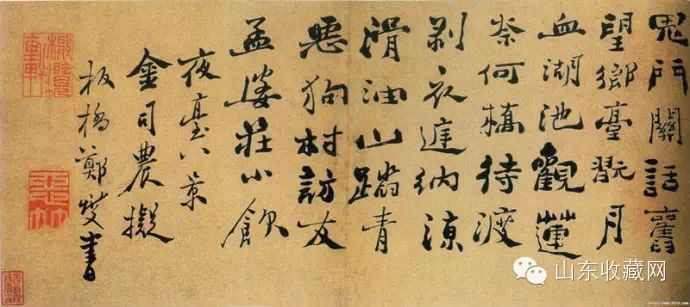 鬼門關話舊
望鄉臺翫月
血湖池觀蓮
奈何橋待渡
剥衣納涼
滑油山踏青
惡狗村訪友
孟婆莊小飲
夜臺八景
金司農擬
板橋鄭燮書
山东收藏网